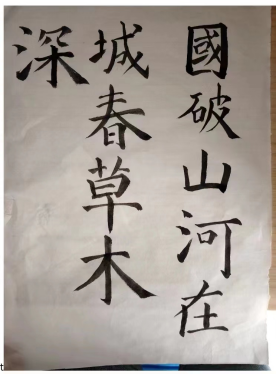 國破山河在
城春草木
深
t